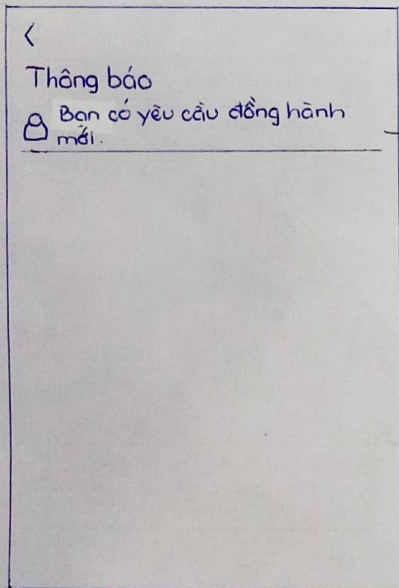 Thông báo
Bạn có yêu cầu đồng hành
mới.